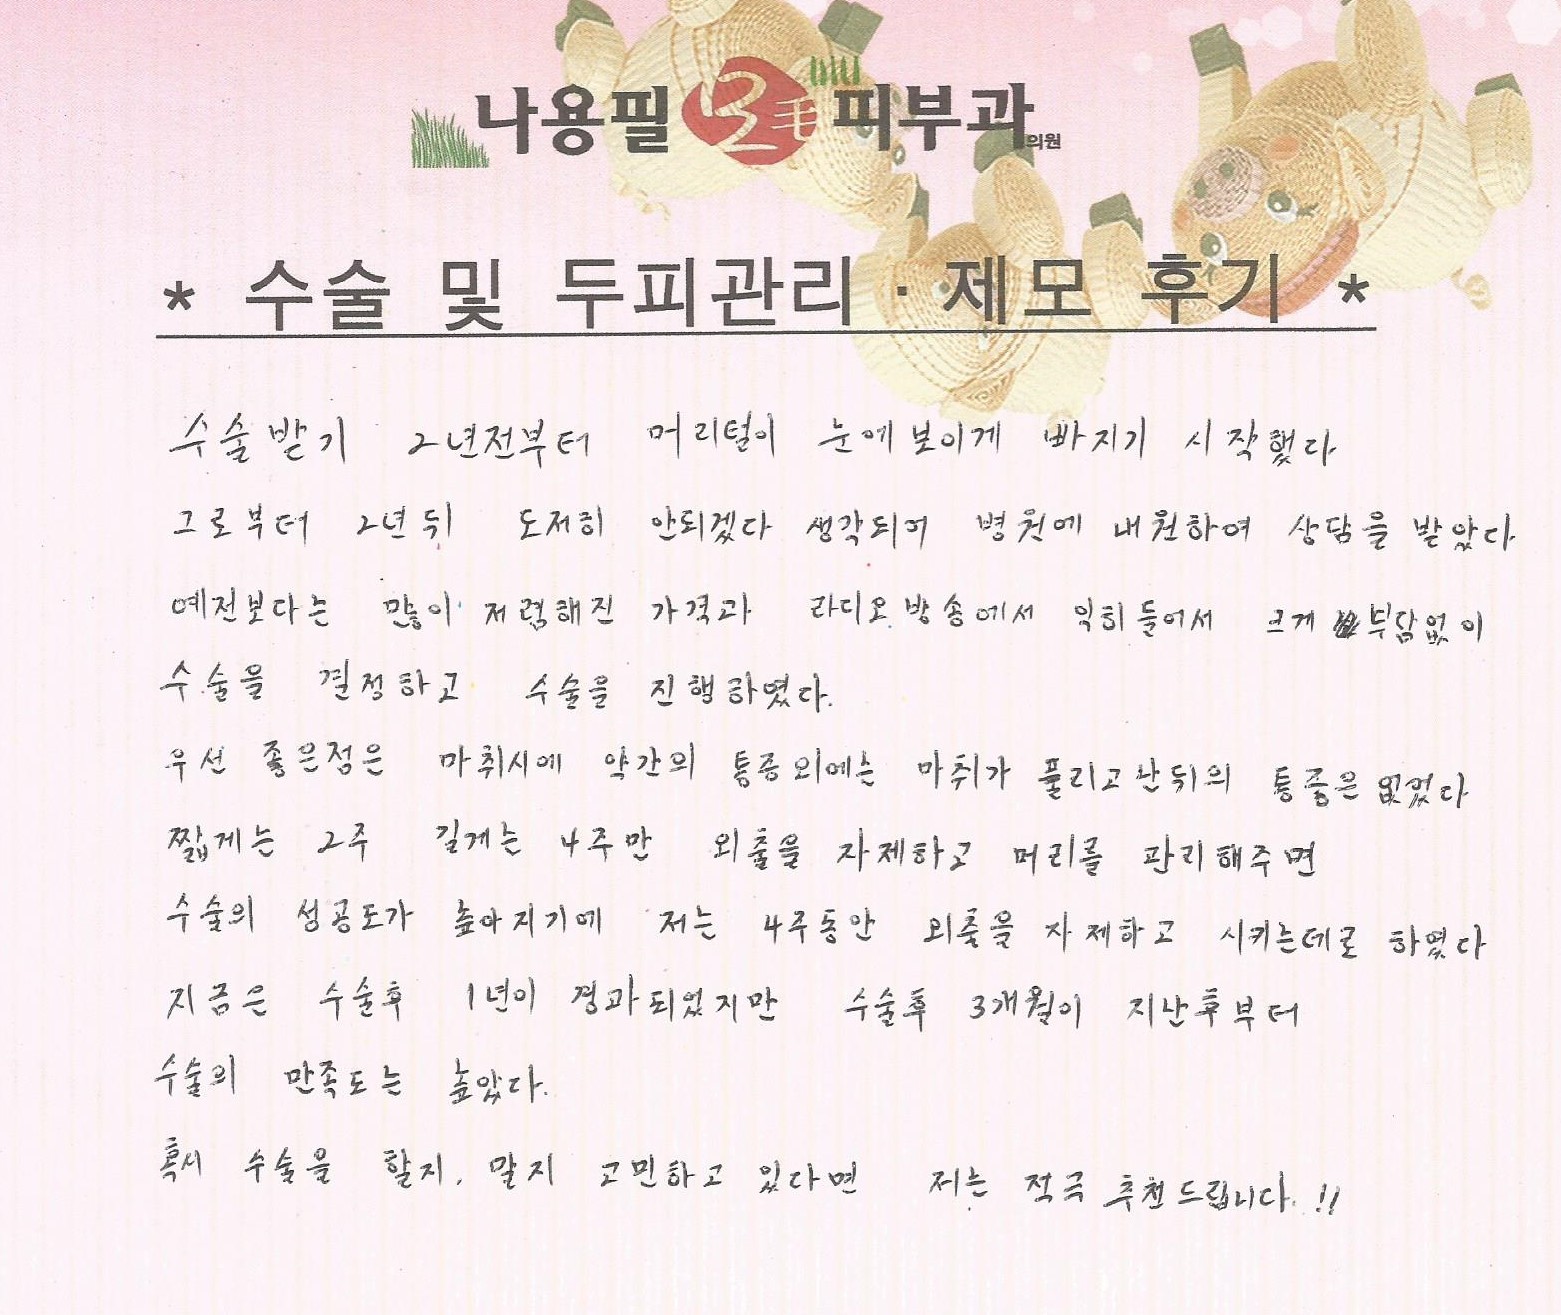 나용필 모毛 피부과의원
* 수술 및 두피관리 · 제모 후기 *
수술받기 2년전부터 머리털이 눈에보이게 빠지기 시작했다
그로부터 2년뒤 도저히 안되겠다 생각되어 병원에 내원하여 상담을 받았다
예전보다는 많이 저렴해진 가격과 라디오방송에서 익히들어서 크게 부담없이
수술을 결정하고 수술을 진행하였다.
우선 좋은점은 마취시에 약간의 통증외에는 마취가 풀리고난뒤의 통증은 없었다
짧게는 2주 길게는 4주만 외출을 자제하고 머리를 관리해주면
수술의 성공도가 높아지기에 저는 4주동안 외출을 자제하고 시키는데로 하였다
지금은 수술후 1년이 경과되었지만 수술후 3개월이 지난후부터
수술의 만족도는 높았다.
혹시 수술을 할지, 말지 고민하고 있다면 저는 적극 추천드립니다.!!